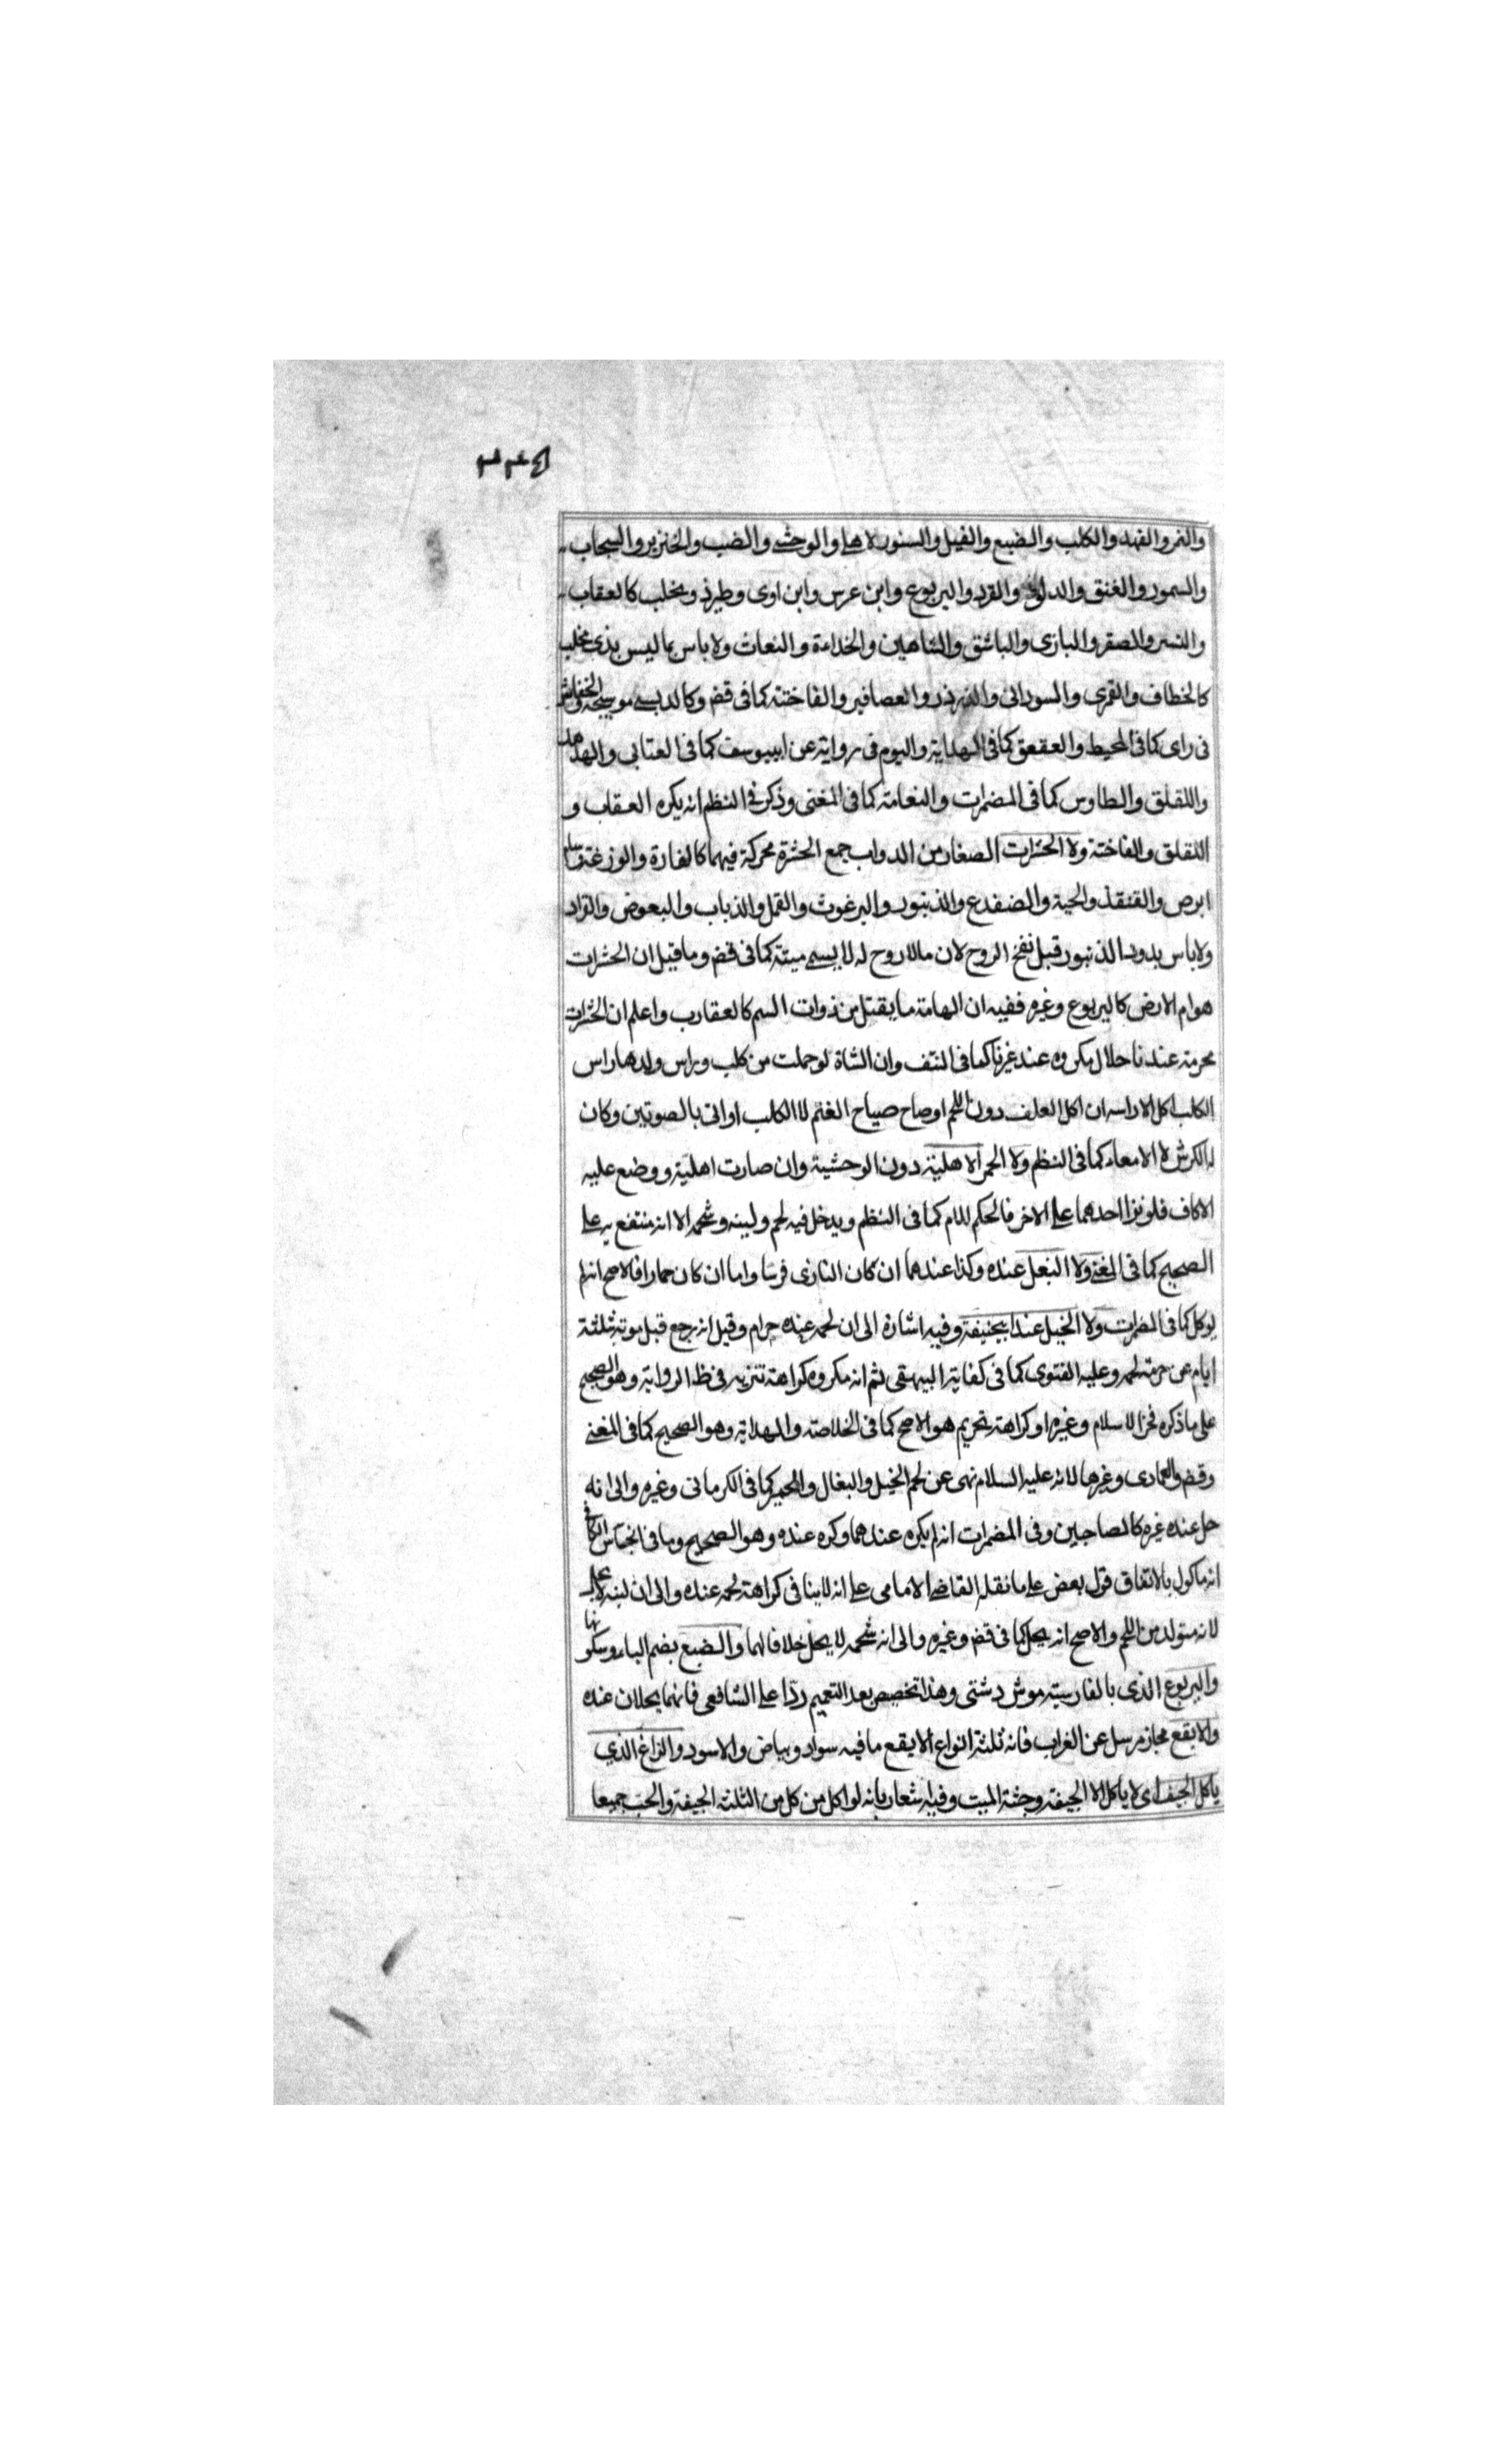 ٣٣٤
والنمر والفهد والكلب والضبع والفيل والسنور الاهلى والوحشى والضب والخنزير والسنجاب
والسمور والفنق والدلق والقرد واليربوع وابن عرس وابن اوى وطير ذو مخلب كالعقاب
والنسر والصقر والبازى والباشق والشاهين والحداءة والنعاث ولا باس بما ليس بذى مخلب
كالخطاف والقمرى والسودانى والزرزر والعصافير والفاختة كما فى قض وكالدبسى موسيجه والخفاش
فى راى كما فى المحيط والعقعق كما فى الهداية والبوم فى رواية عن ابييوسف كما فى العتابى والهدهد
واللقلق والطاوس كما فى المضمرات والنعامة كما فى المغنى وذكر فى النظم انه يكره العقاب و
اللقلق والفاختة ولا الحشرات الصغار من الدواب جمع الحشرة محركة فيهما كالفارة والوزغة وسام
ابرص والقنقذ والحية والضفدع والذنبور والبرغوث والقمل والذباب والبعوض والقراد
ولا باس بدود الذنبور قبل نفخ الروح لان ما لا روح له لا يسمى ميتة كما فى قض وما قيل ان الحشرات
هوام الارض كاليربوع وغيره ففيه ان الهامة ما يقتل من ذوات السم كالعقارب واعلم ان الحشرات
محرمة عندنا حلال مكروه عند غيرنا كما فى النتف وان الشاة لو حملت من كلب وراس ولدها راس
الكلب اكل الا راسه ان اكل العلف دون اللحم او صاح صياح الغنم لا الكلب او اتى بالصوتين وكان
له الكرش لا الامعاء كما فى النظم ولا الحمر الاهلية دون الوحشية وان صارت اهلية ووضع عليه
الاكاف فلو نزا احدهما على الاخر فالحكم للام كما فى النظم ويدخل فيه لحم ولبنه وشحمه الا انه منتفع به على
الصحيح كما فى المغنى ولا البغل عنده وكذا عندهما ان كان النازى فرسا واما ان كان حمارا فالاصح انه لم
يوكل كما فى المضمرات ولا الخيل عند ابيحنيفة وفيه اشارة الى ان لحمه عنده حرام وقيل انه رجع قبل موته بثلثة
ايام عن حرمة لحمه وعليه الفتوى كما فى كفاية البيهقى ثم انه مكروه كراهة تنزيه فى ظ الرواية وهو الصحيح
على ما ذكره فخر الاسلام وغيره او كراهة تحريم هو الاصح كما فى الخلاصة والهداية وهو الصحيح كما فى المغنى
وقض والعمادى وغيرها لانه عليه السلام نهى عن لحم الخيل والبغال والحمير كما فى الكرمانى وغيره والى انه
حل عند غيره كالصاحبين وفى المضمرات انه لم يكره عندهما وكره عنده وهو الصحيح وما فى
انه ماكول بالاتفاق قول بعض على ما نقله القاضى الامامى على انه لا ينافى كراهة لحمه عنده والى ان لبنه لا يحل
لانه متولد من اللحم والاصح انه يحل كما فى قض وغيره والى انه شحمه لا يحل خلافا لهما والضبع بضم الباء وسكونها
واليربوع الذى بالفارسية موش دشتى وهذا تخصيص بعد التعميم ردا على الشافعى فانهما يحلان عنده
والابقع مجاز مرسل عن الغراب فانه ثلثة انواع الابقع ما فيه سواد وبياض والاسود والزاغ الذي
ياكل الجيف اى لا ياكل الا الجيفة وجثة الميت وفيه اشعار بانه لو اكل من كل من الثلثة الجيفة والحب جميعا